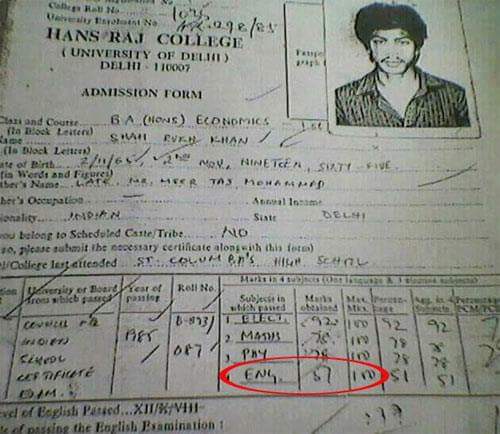 College Roll No.
University Enrolment No. 298/85
HANS RAJ COLLEGE
(UNIVERSITY OF DELHI)
DELHI - 110007
ADMISSION FORM
Class and Course B.A. (HONS) ECONOMICS
(In Block Letters)
Name SHAH RUKH KHAN
(In Block Letters)
ate of Birth 2/11/65, 2ND NOV, NINETEEN, SIXTY-FIVE.
(in Words and Figures)
ther's Name LATE. MR. MEER TAJ MOHAMMAD
her's Occupation Annual Income
ionality INDIAN State DELHI
you belong to Scheduled Caste/Tribe NO
so, please submit the necessary certificate alongwith this form)
l/College last attended ST. COLUMBA'S HIGH SCHOOL
Marks in 4 subjects (One language & 3 elected subjects)
University or Board from which passed Year of passing Roll No. Subjects in which passed Marks obtained Max. Mks. Percen-tage Agg. in Subjects Percentag PCM/PCB
COUNCIL 1985 1. ELECT. 92 100 92 92
INDIAN 087 2. MATHS 78 100 78
SCHOOL 3. PHY 78 100 78 78
CERTIFICATE ENG. 51 100 51 51
EXAM.
evel of English Passed...XII/X/VIII-
te of passing the English Examination :